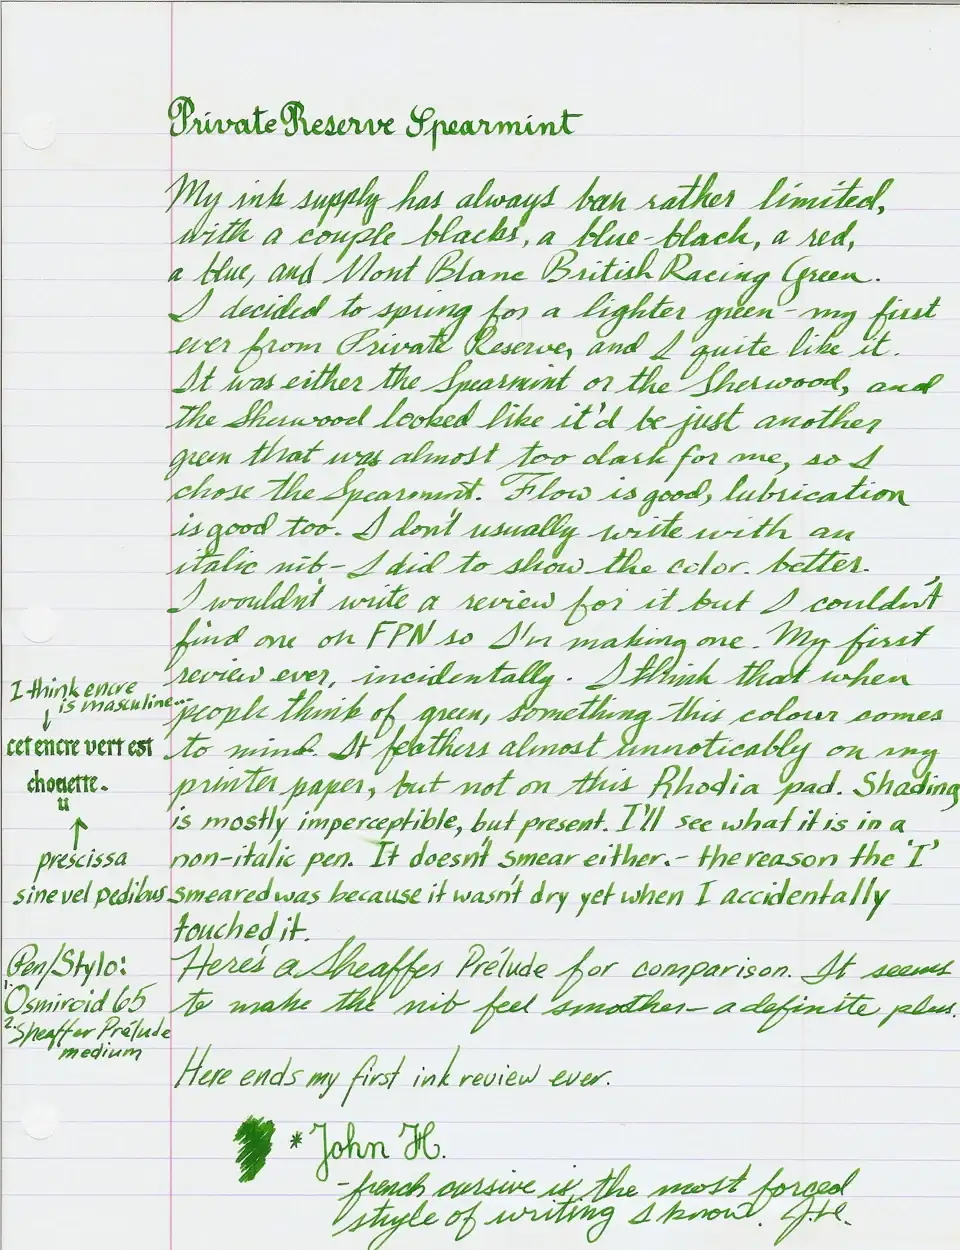 Private Reserve Spearmint
My ink supply has always been rather limited,
with a couple blacks, a blue-black, a red,
a blue, and Mont Blanc British Racing Green.
I decided to spring for a lighter green - my first
ever from Private Reserve, and I quite like it.
It was either the Spearmint or the Sherwood, and
the Sherwood looked like it'd be just another
green that was almost too dark for me, so I
chose the Spearmint. Flow is good, lubrication
is good too. I don't usually write with an
italic nib - I did to show the color better.
I wouldn't write a review for it but I couldn't
find one on FPN so I'm making one. My first
review ever, incidentally. I think that when
people think of green, something this colour comes
to mind. It feathers almost unnoticably on my
printer paper, but not on this Rhodia pad. Shading
is mostly imperceptible, but present. I'll see what it is in a
non-italic pen. It doesn't smear either. - the reason the 'I'
smeared was because it wasn't dry yet when I accidentally
touched it.
Here's a Sheaffer Prélude for comparison. It seems
to make the nib feel smoother - a definite plus.
Here ends my first ink review ever.
* John H.
- french cursive is the most forced
style of writing I know. J.H.
I think encre
is masculine...
↓
cet encre vert est
chouette.
u
↑
prescissa
sine vel pedibus
Pen/Stylo:
1. Osmiroid 65
2. Sheaffer Prélude
medium